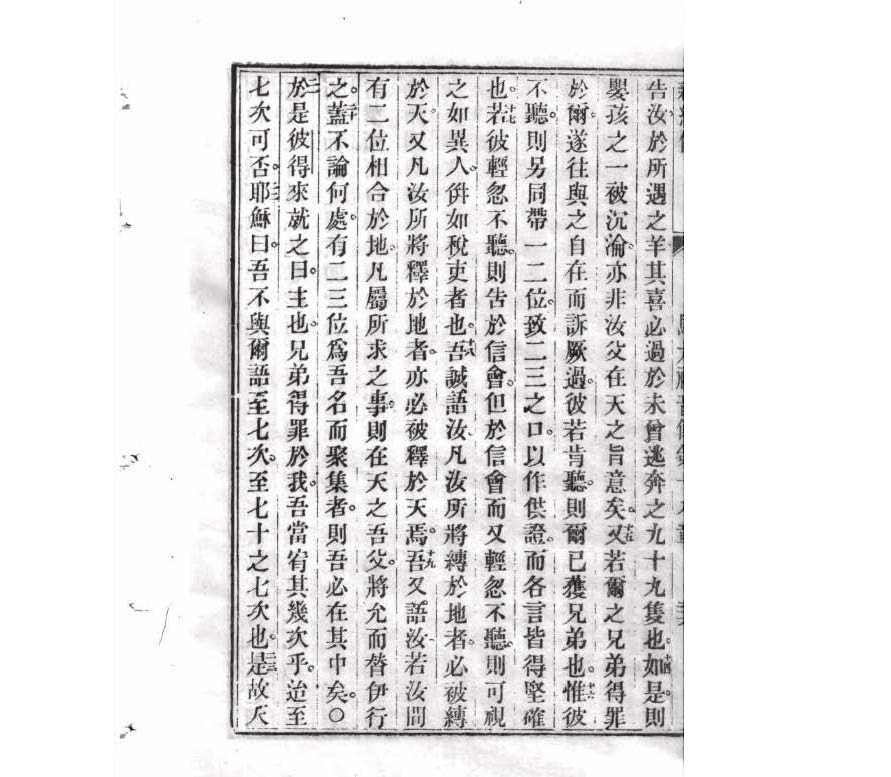 告汝於所遇之羊其喜必過於未曾逃奔之九十九隻也。十四如是。則
嬰孩之一被沉淪。亦非汝父在天之旨意矣。十五又若爾之兄弟得罪
於爾。遂往與之自在而訴厥過。彼若肯聽。則爾已獲兄弟也。十六惟彼
不聽。則另同帶一二位。致二三之口。以作供證。而各言皆得堅確
也。十七若彼輕忽不聽。則告於信會。但於信會而又輕忽不聽。則可視
之如異人。倂如稅吏者也。十八吾誠語汝。凡汝所將縛於地者。必被縛
於天。又凡汝所將釋於地者。亦必被釋於天焉。十九吾又語汝。若汝間
有二位相合於地。凡屬所求之事。則在天之吾父。將允而替伊行
之。二十蓋不論何處。有二三位爲吾名而聚集者。則吾必在其中矣。〇
二一於是彼得來就之曰。主也。兄弟得罪於我。吾當宥其幾次乎。迨至
七次可否。二二耶穌曰。吾不與爾語至七次。至七十之七次也。二三是故天